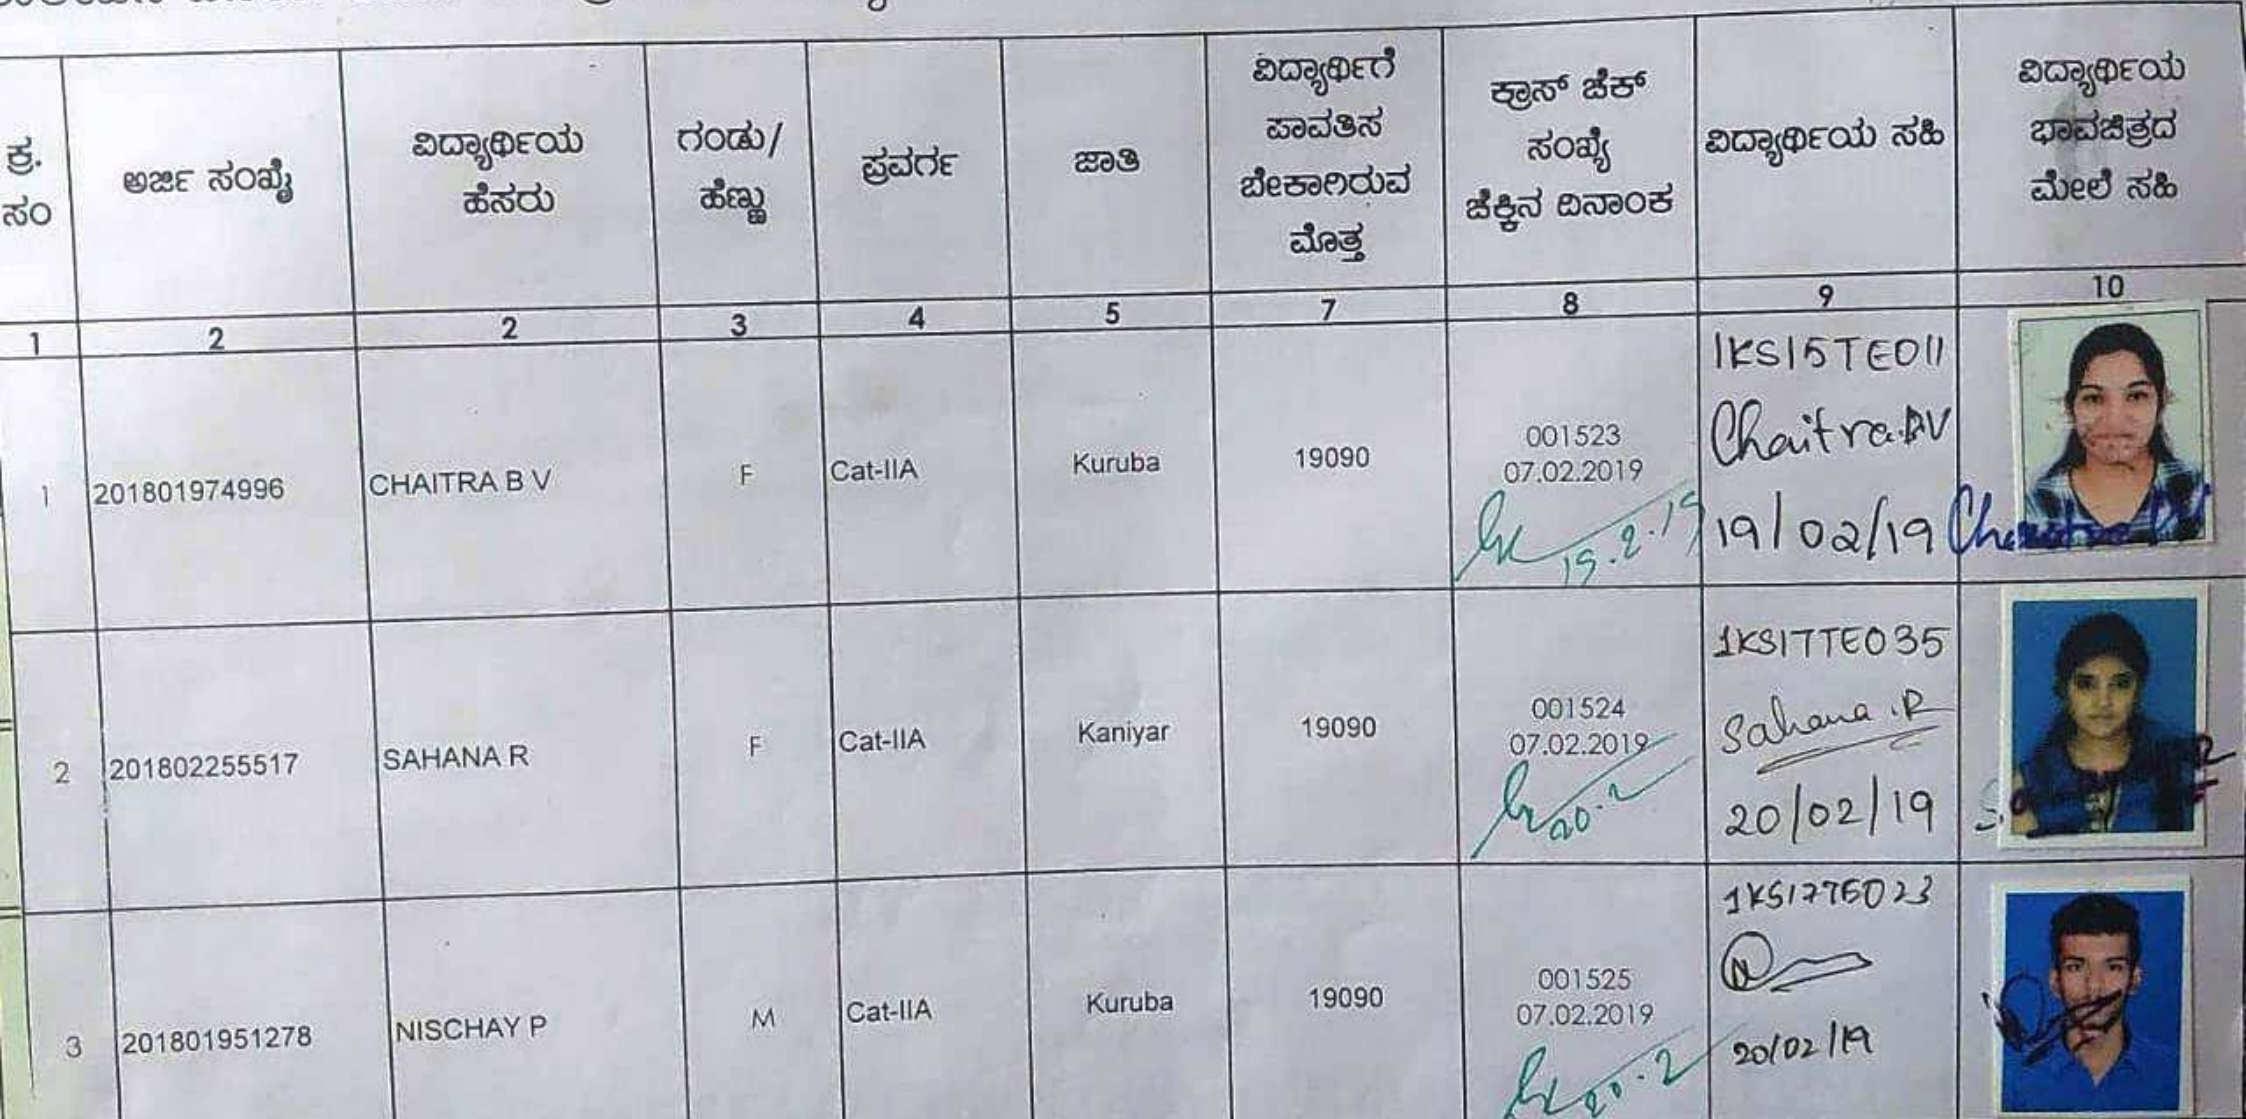 ಕ್ರ.
ಸಂ
ಅರ್ಜಿ ಸಂಖ್ಯೆ
ವಿದ್ಯಾರ್ಥಿಯ
ಹೆಸರು
ಗಂಡು/
ಹೆಣ್ಣು
ಪ್ರವರ್ಗ
ಜಾತಿ
ವಿದ್ಯಾರ್ಥಿಗೆ
ಪಾವತಿಸ
ಬೇಕಾಗಿರುವ
ಮೊತ್ತ
ಕ್ರಾಸ್ ಚೆಕ್
ಸಂಖ್ಯೆ
ಚೆಕ್ಕಿನ ದಿನಾಂಕ
ವಿದ್ಯಾರ್ಥಿಯ ಸಹಿ
ವಿದ್ಯಾರ್ಥಿಯ
ಭಾವಚಿತ್ರದ
ಮೇಲೆ ಸಹಿ
1 2 2 3 4 5 7 8 9 10
1 201801974996 CHAITRA B V F Cat-IIA Kuruba 19090
001523
07.02.2019
19.2.19
1KS15TE011
Chaitra.BV
19/02/19
Chaitra BV
2 201802255517 SAHANA R F Cat-IIA Kaniyar 19090
001524
07.02.2019
20.2
1KS17TE035
Sahana.R
20/02/19
3 201801951278 NISCHAY P M Cat-IIA Kuruba 19090
001525
07.02.2019
20.2
1KS17TE023
20/02/19